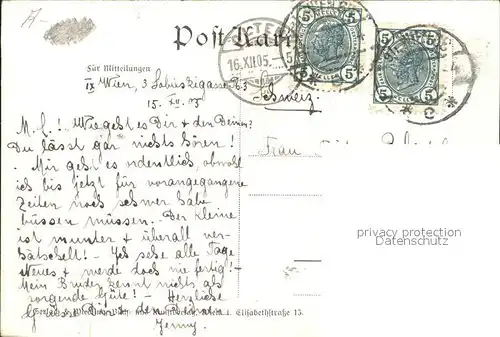 Post Karte
Für Mitteilungen
IX Wien, 3 Sobieskigasse
15. XII. 05
16.XII.05.-5
5 5
5 5
Schweiz
M. L.! Wie geht es Dir & den Deinen?
Du lässt gar nichts hören!
Frau
Mir geht es ordentlich, obwohl
ich bis jetzt für vorangegangene
Zeiten noch schwer habe
büssen müssen. Der Kleine
ist munter & überall ver-
hätschelt! - Ich sehe alle Tage
Neues & werde doch nie fertig! -
Mein Bruder kennt nichts als
sorgende Güte! - Herzliche
Grüsse Dir & den Deinen
Jenny.
privacy protection
Datenschutz
Elisabethstraße 13.